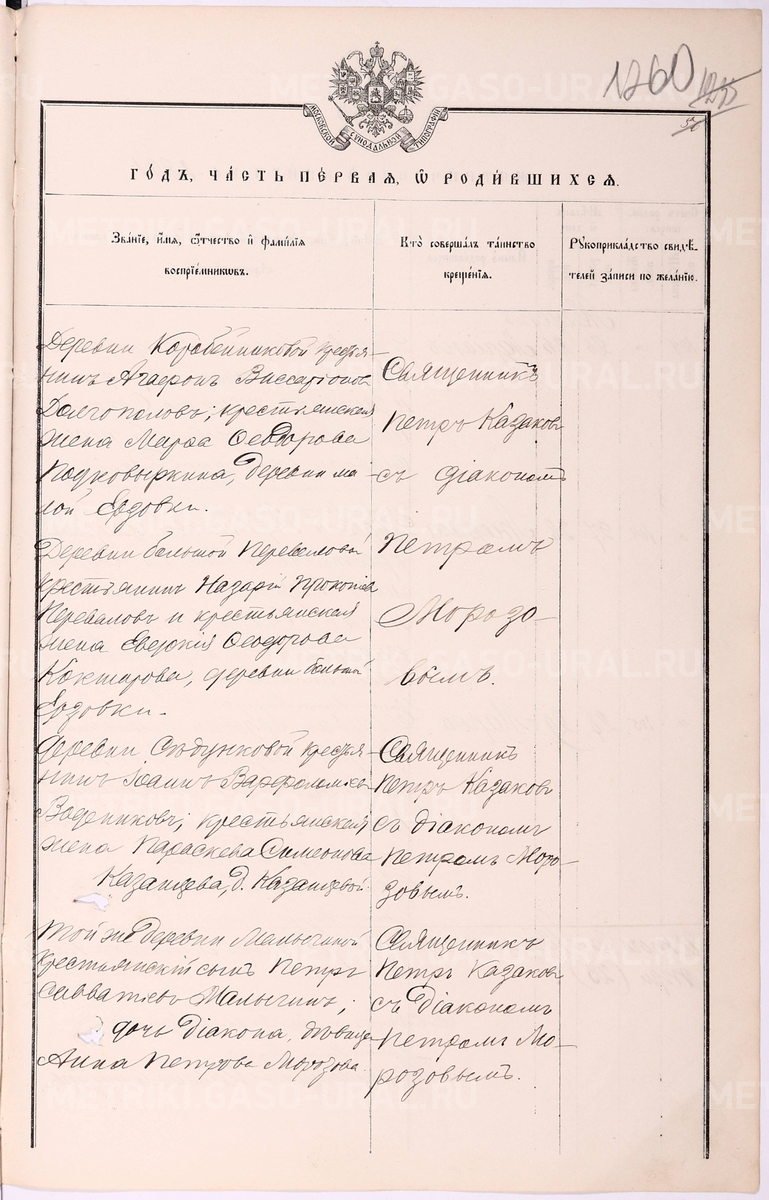 1260
1255
МОСКОВСКОЙ СѴНОДАЛЬНОЙ ТИПОГРАФІИ
ГО́ДЪ, ЧА́СТЬ ПЕ́РВАЯ, Ѡ҆ РОДИ́ВШИХСЯ.
Зва́нїе, и҆́мя, ѻ҆́тчество и҆ фами́лїя
воспрїе́мниковъ.
Кто̀ соверша́лъ та́инство
креще́нїя.
Рꙋкоприкла́дство свидѣ́-
телей за́писи по жела́нїю.
Деревни Коробейниковой крестья-
нинъ Агафонъ Виссаріоновъ
Долгополовъ; крестьянская
жена Марѳа Ѳеодорова
Подковыркина, деревни ма-
лой Ердовки.
Священникъ
Петръ Казаковъ
съ діакономъ
Петромъ
Морозо-
вымъ.
Деревни большой Переваловой
крестьянинъ Назарій Прокопіевъ
Переваловъ и крестьянская
жена Евдокія Ѳеодорова
Кокшарова, деревни большой
Ердовки.
Деревни крестья-
нинъ Іоаннъ Варѳоломеевъ
Водениковъ; крестьянская
жена Параскева Симеонова
Казанцева, д. Казанцевой.
Священникъ
Петръ Казаковъ
съ діакономъ
Петромъ Моро-
зовымъ.
Той же деревни Малыгиной
крестьянскій сынъ Петръ
Савватіевъ Малыгинъ;
дочь Діакона, дѣвица
Анна Петрова Морозова.
Священникъ
Петръ Казаковъ
съ Діакономъ
Петромъ Мо-
розовымъ.
METRIKI.GASO-URAL.RU